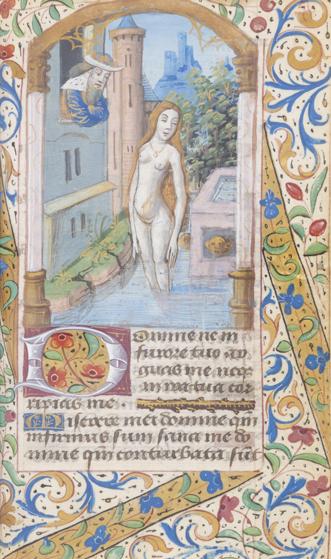 Domine ne in
furore tuo ar
guas me neqz
in ira tua cor
ripias me.
Miserere mei domine qm
infirmus sum sana me do
mine qm conturbata sūt